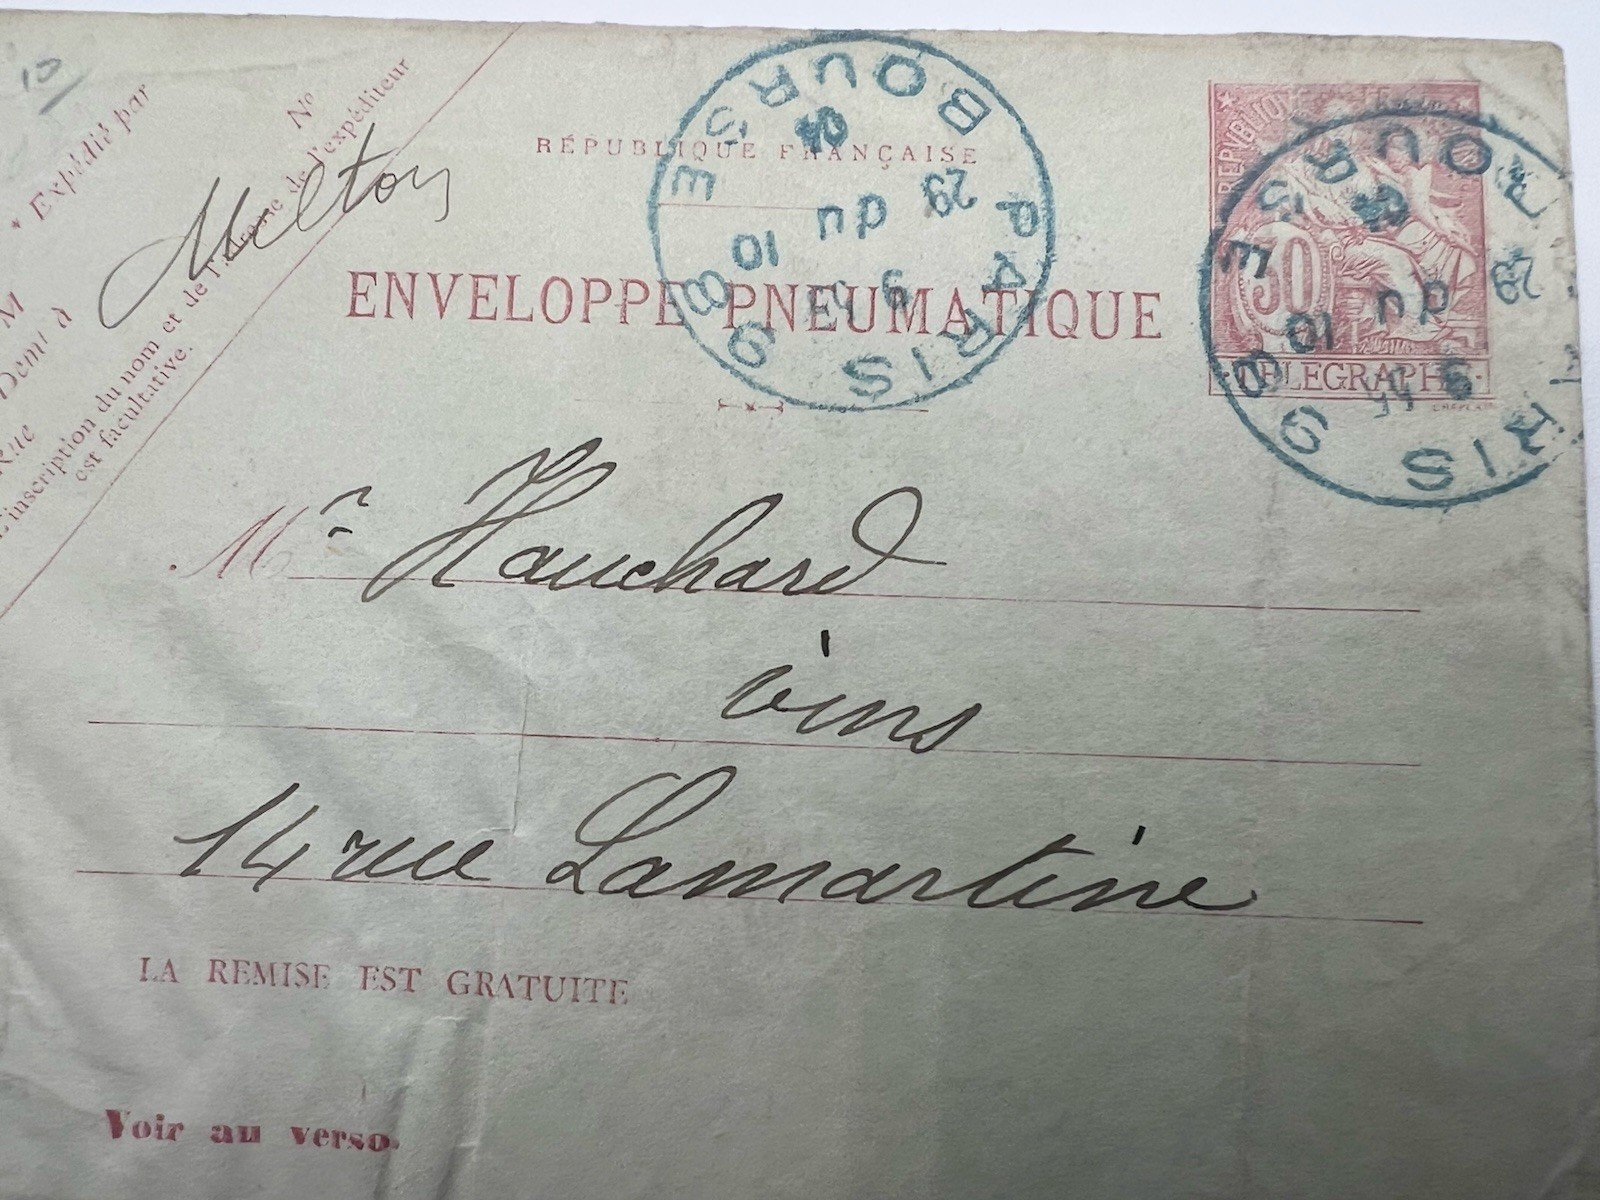 10
* Expédié par
Melton
M
Demt à
Rue
L'inscription du nom et de l'adresse de l'expéditeur
est facultative.
No
RÉPUBLIQUE FRANÇAISE
ENVELOPPE PNEUMATIQUE
PARIS 98 BOURSE
29
du
10
04
REPUBLIQUE
30
TELEGRAPHE
CHAPLAIN
RIS 98 BOURSE
29
du
10
Mr Hauchard
vins
14 rue Lamartine
LA REMISE EST GRATUITE
Voir au verso.